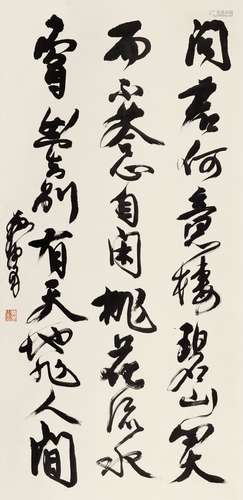 问君何意栖碧山笑
而不答心自闲桃花流水
窅然去别有天地非人间